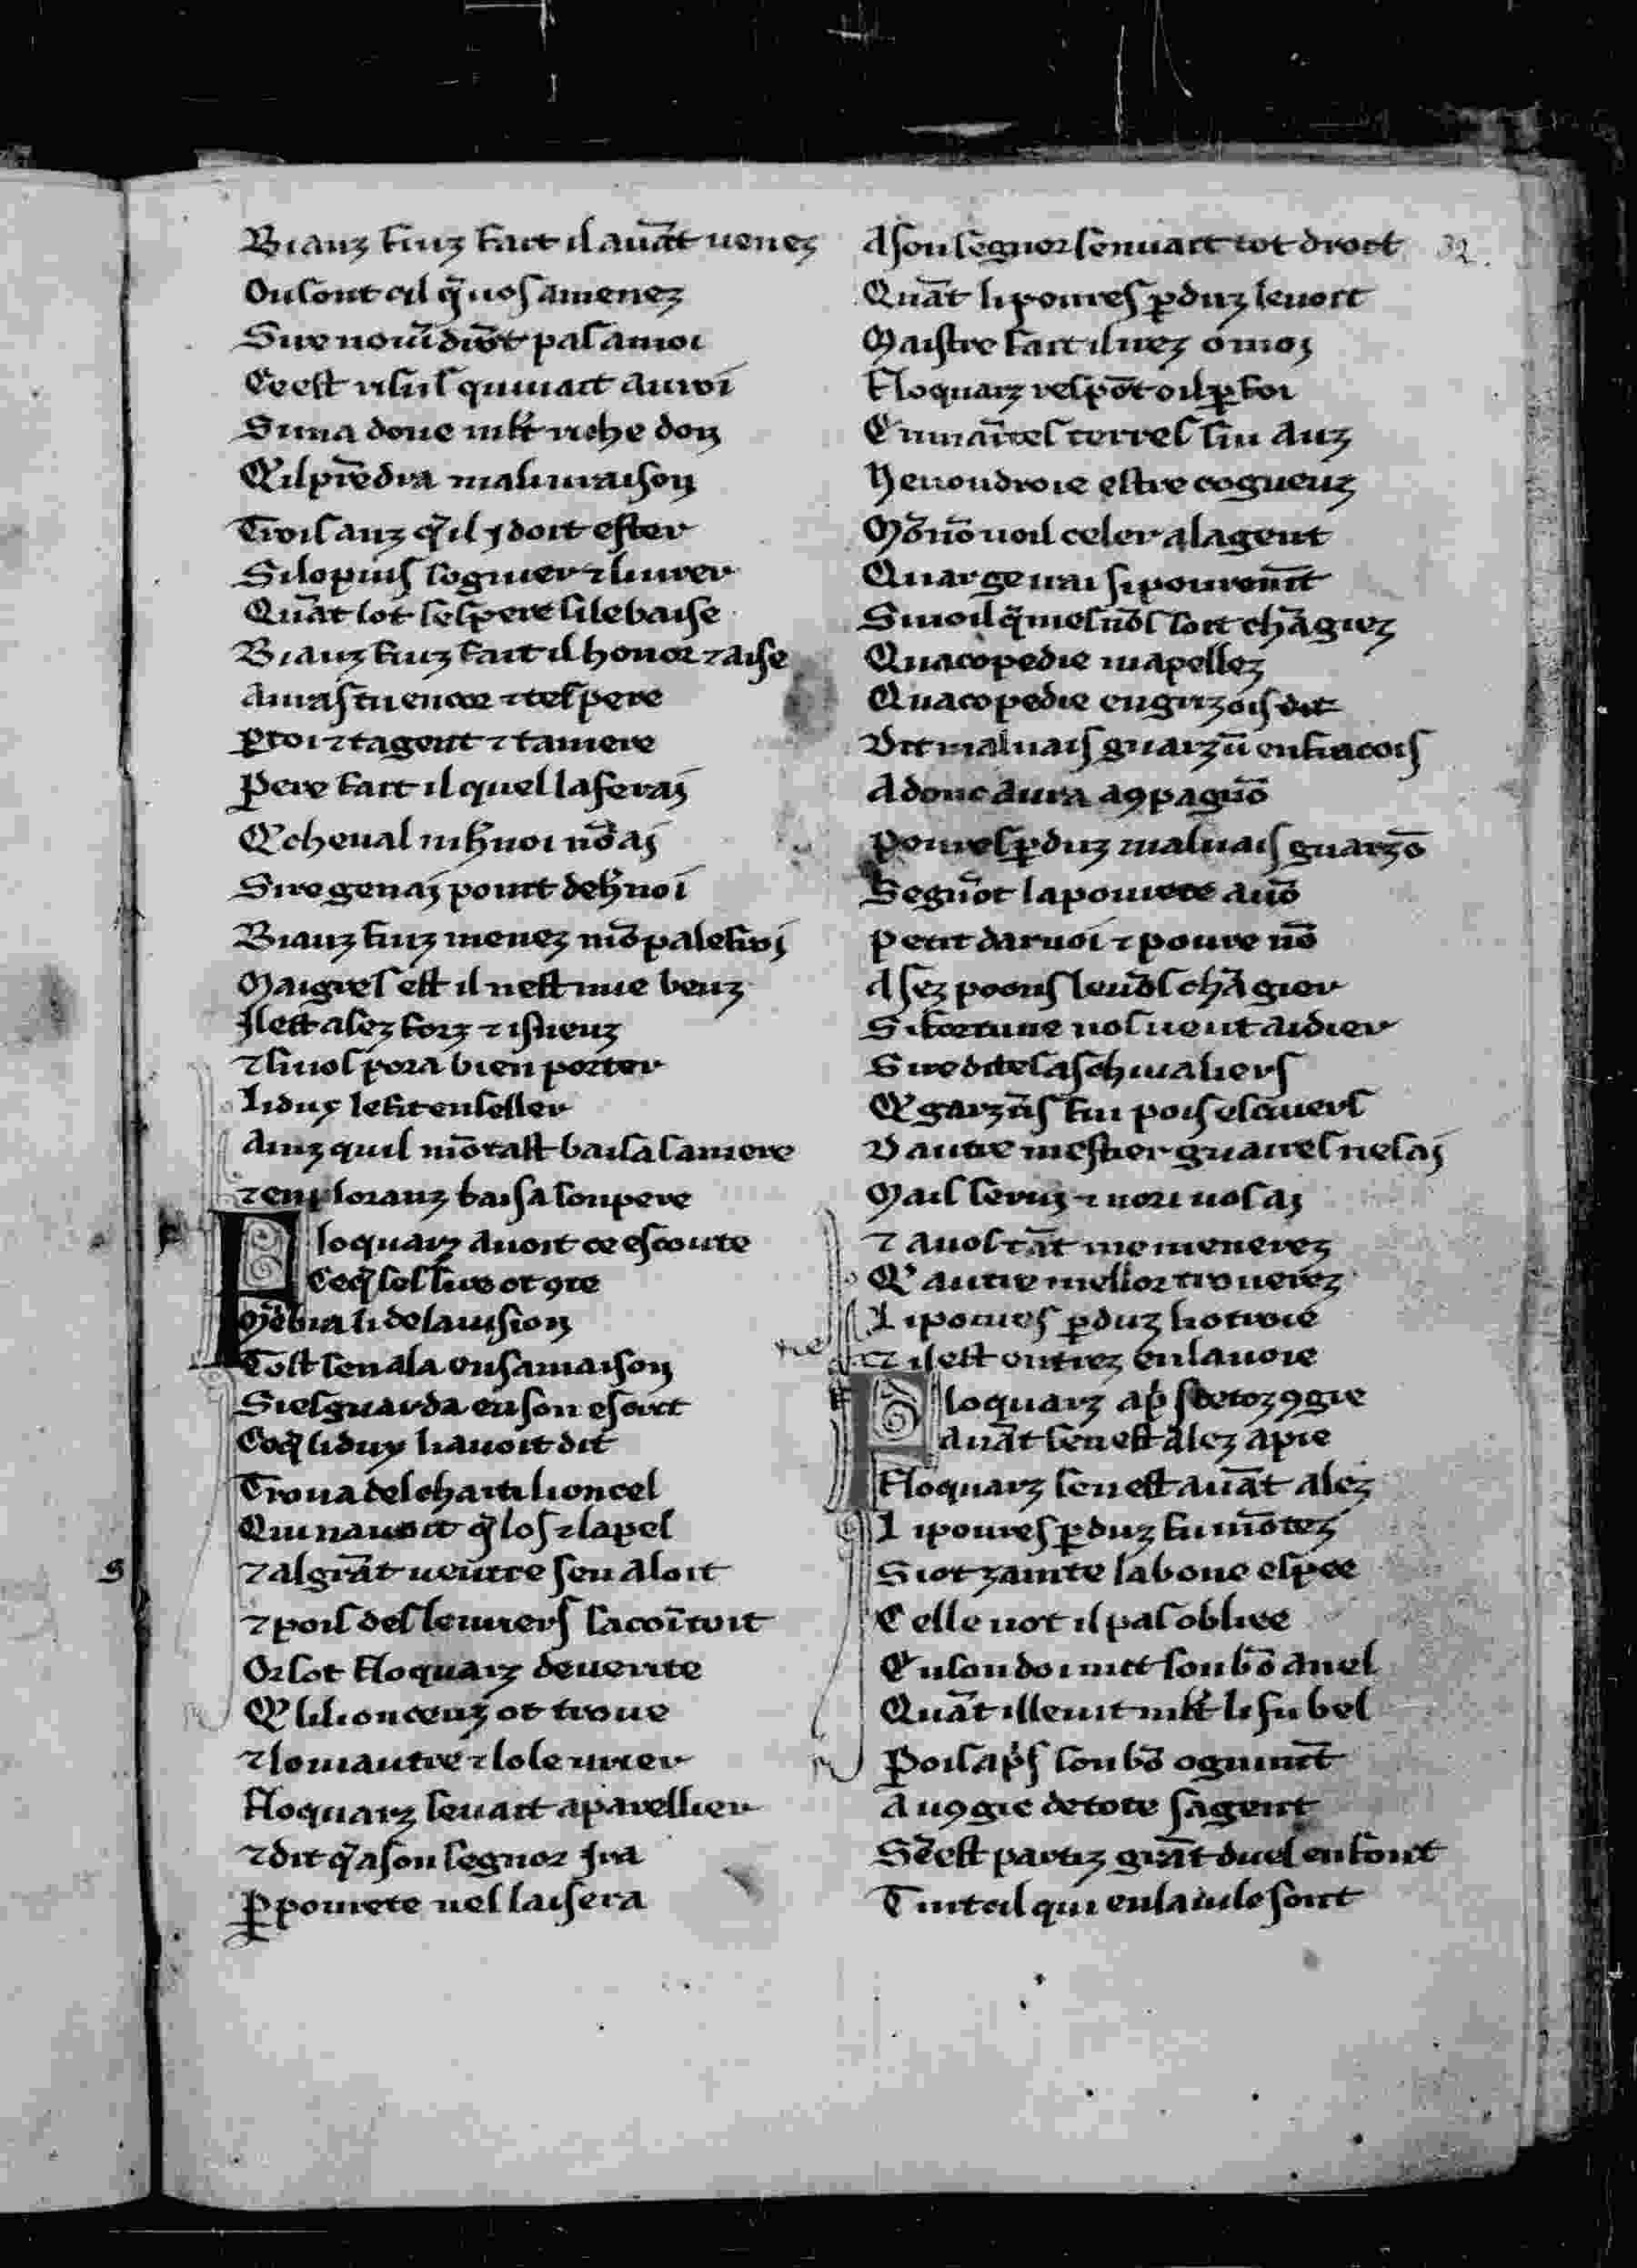 Biauz fiuz fait il auāt uenez
Ou sont cil q̄ uos amenez
Sire nou diōt pas a moi
Ce est uls qui uait au roi
Si ma done mlt riche don
Q'il prēdra mal maison
Trois anz q'il i doit ester
Si lo puis sognier ⁊ liurer
Quāt lot ses pere si le baise
Biauz fiuz fait il honor ⁊ aise
Auras tu encor ⁊ tes pere
ꝑ toi ⁊ ta gent ⁊ ta mere
Pere fait il quel la ferai
Q' cheual ni h̄noi nō ai
Sire ge nai point de h̄noi
Biauz fiuz menez mō palefroi
Maigres est il nest mie beuz
Il est asez forz ⁊ isneuz
⁊ si uos pora bien porter
Li dux le fit enseller
Ainz quil mōtast baisa sa mere
⁊ en ploranz baisa son pere
Floquarz auoit ce escoute
Ce q̄ ses sire ot 9te
Mēbra li de la uision
Tost sen ala en sa maison
Si esguarda en son escrit
Ce q̄ li dux li auoit dit
Troua del chaitif lioncel
Qui nauoit q̄ los ⁊ la pel
⁊ al grāt uentre sen aloit
⁊ pois des leuriers sacoītoit
Or sot Floquarz de uerite
Q' li lionceuz ot troue
⁊ lo mautre ⁊ lo leurier
Floquarz se uait aparellier
⁊ dit q̄ a son segnor ira
ꝑ pourete nel laisera
A son segnor sen uait tot droit 32.
Quāt li poures ꝑduz le uoit
Maistre fait il uiez o moi
Floquarz respōt oil ꝑ foi
En maītes terres sui auz
Ne uoudroie estre cogneuz
Mō nō uoil celer a la gent
Quar ge uai si pouremt̄
Si uoil q̄ mes nōs soit chāgiez
Quacopedie mapellez
Quacopedie en grizois dit
Dit maluais guarzū en fracois
Adonc aura a 9pagnō
Poures ꝑduz maluais guarzō
Segnor la pourete auō
Petit darnoi ⁊ poure nō
Asez poons les nōs chāgier
Si fortune nos ueut aidier
Sire dites as cheualiers
Q' garzūs fui pois escuers
D autre mestier guaires ne sai
Mais serui ⁊ nori uos ai
⁊ a uos tāt me menerez
Q' autre mellor trouerez
Li poures ꝑduz li otroie
⁊ il est entrez en la uoie
Floquarz ap̄s de toz 9gie
Auāt sen est alez a pie
Floquarz sen est auāt alez
Li poures ꝑduz fu mōtez
Si ot zainte la bone espee
Celle not il pas obliee
En son doi mit son bō anel
Quāt il le uit mlt li fu bel
Pois ap̄s son bō ognimt̄
A u 9gie de tote sa gent
Sē est partiz grāt duel en font
Tuit cil qui en la uile sont